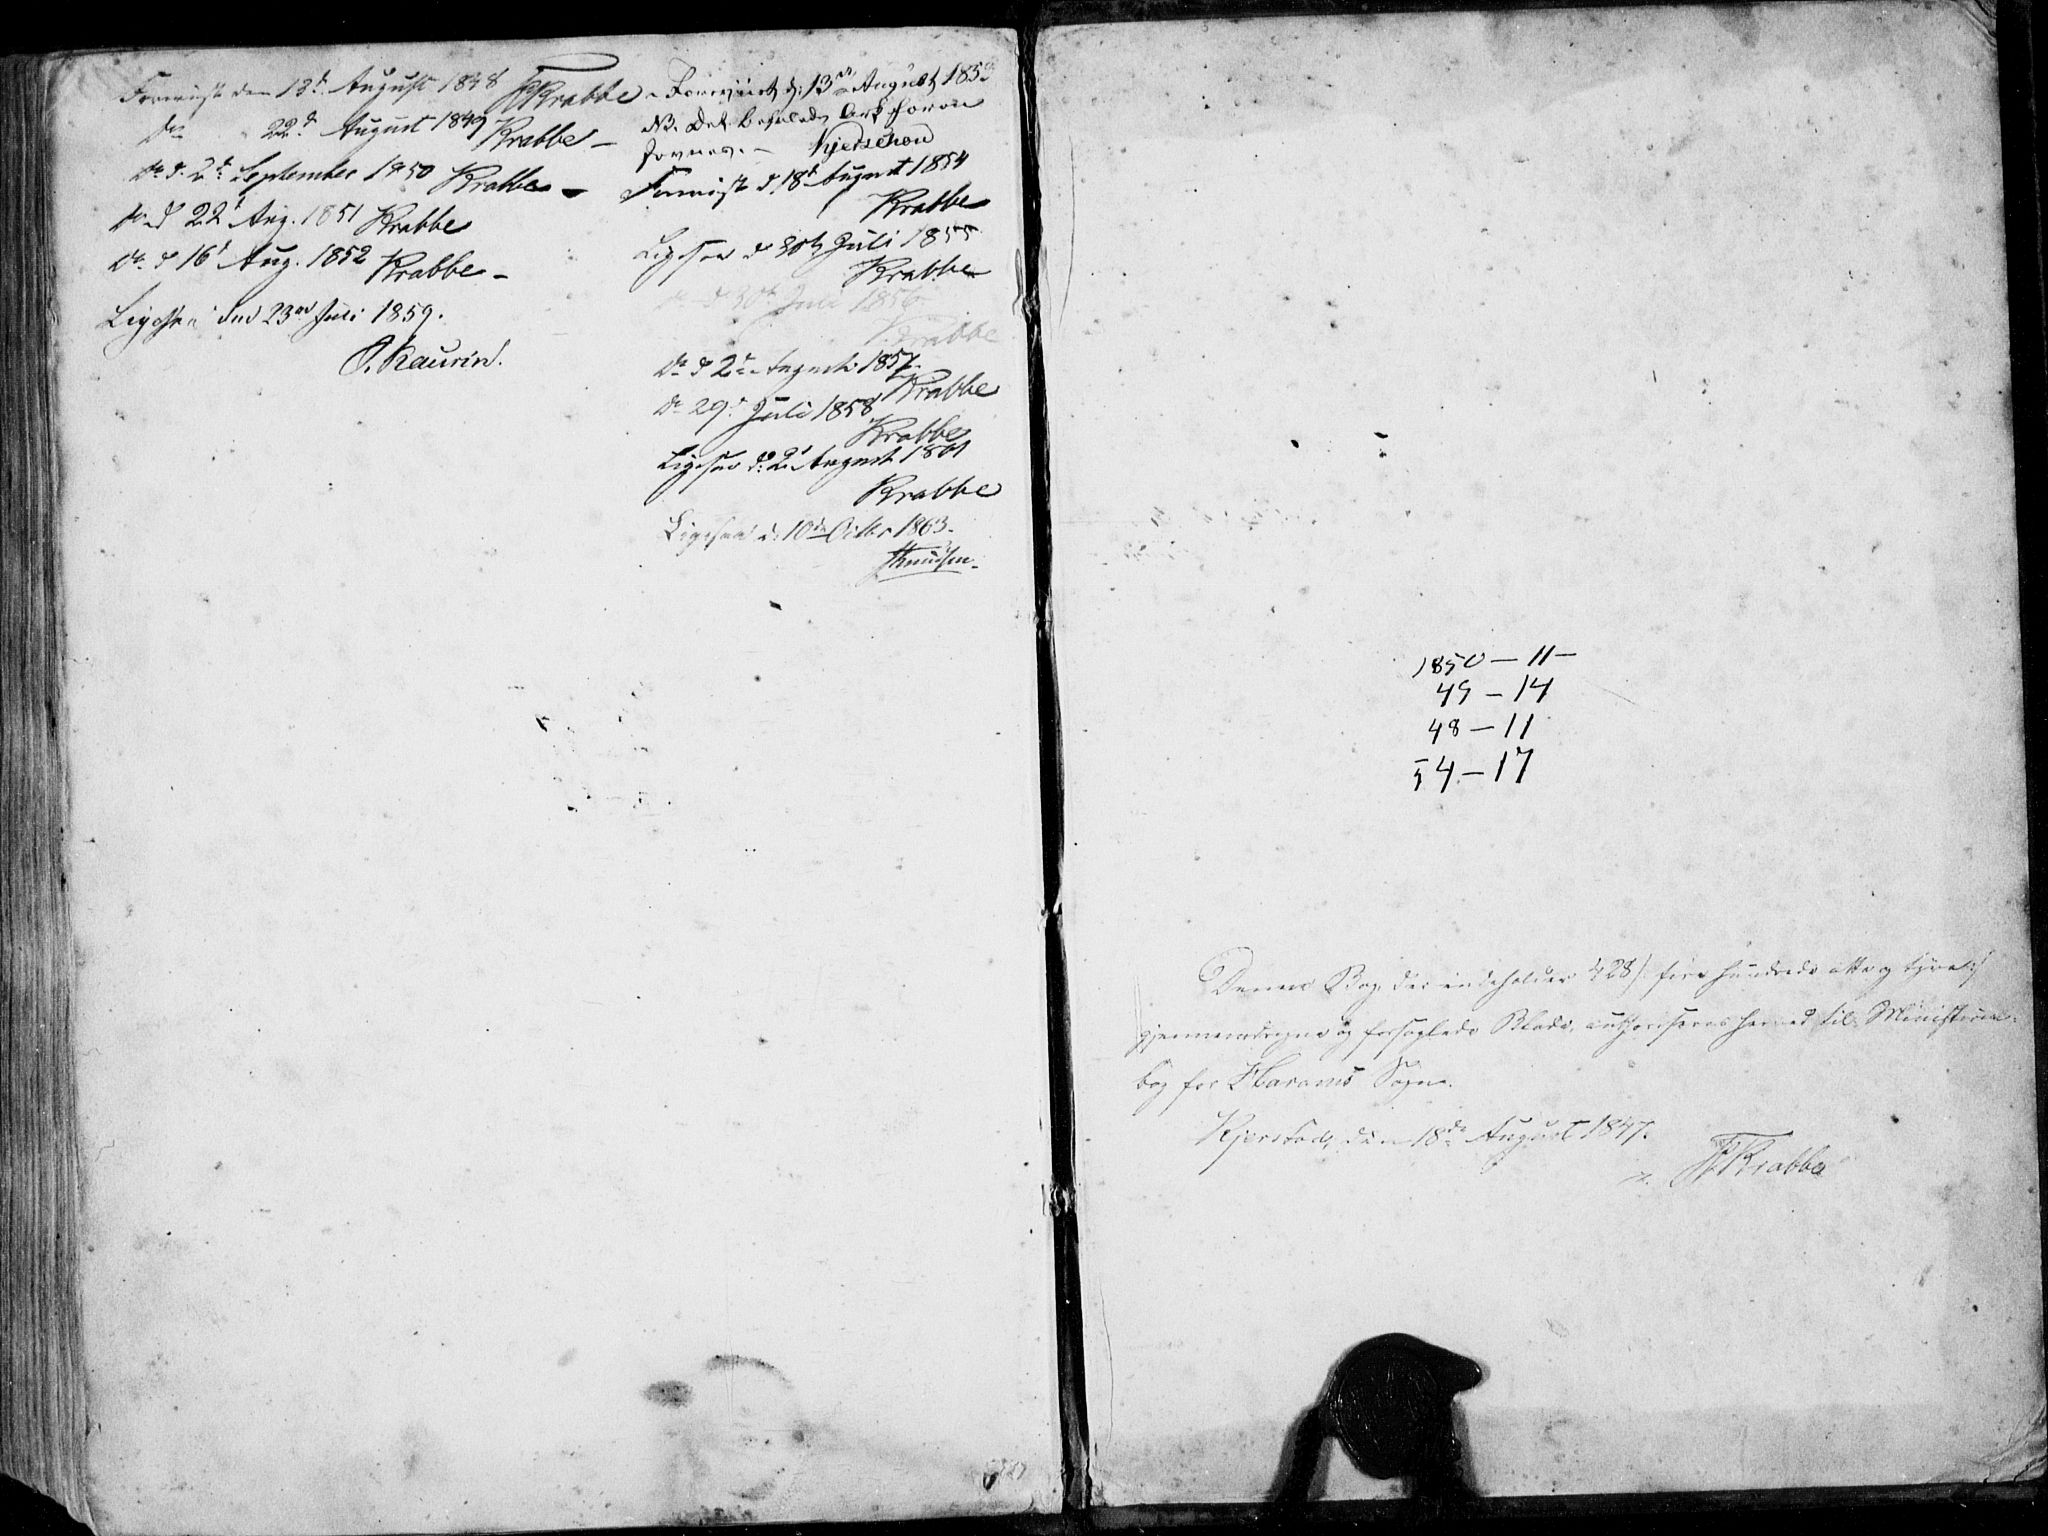 Foreviist den 13d August 1848 Krabbe
do 22d August 1849 Krabbe
do d. 2d September 1850 Krabbe
do d 22d Aug. 1851 Krabbe
do d 16d Aug. 1852 Krabbe
Ligesaa den 23de Juli 1859.
Kaurin.
Foreviist d: 13de August 1853
NB. Det befalede Ark
Kjerschow
Foreviist d. 18d August 1854
Krabbe
Ligesaa d 30te Juli 1855
Krabbe
do d 30te Juli 1856
Krabbe
do d 2d August 1857
Krabbe
do 29d Juli 1858
Krabbe
Ligesaa d: 2d August 1861
Krabbe
Ligesaa d: 10de Octbr 1863.
Knudsen
1850 – 11 –
49 – 14
48 – 11
54 – 17
Denne Bog, der indeholder 428 /: fire hundrede otte og tyve :/
gjennemdragne og forseglede Blade, authoriseres herved til Ministerial-
bog for Harams Sogn.
Kjerstad, den 18de August 1847.
Krabbe